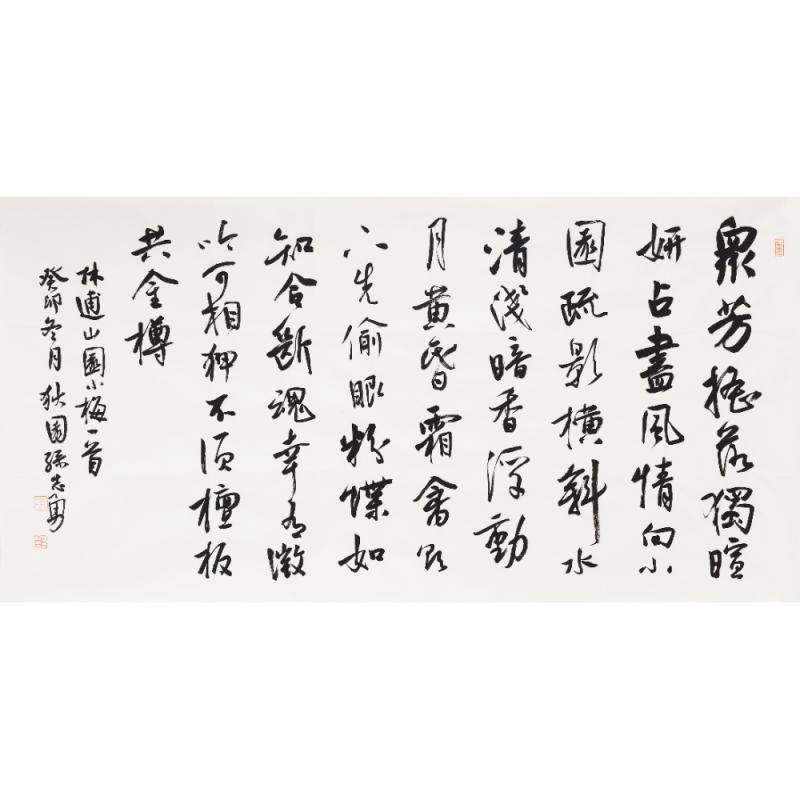 眾芳搖落獨暄
妍占盡風情向小
園疏影橫斜水
清淺暗香浮動
月黃昏霜禽欲
下先偷眼粉蝶如
知合斷魂幸有微
吟可相狎不須檀板
共金樽
林逋山園小梅一首
癸卯冬月狄園孫志勇